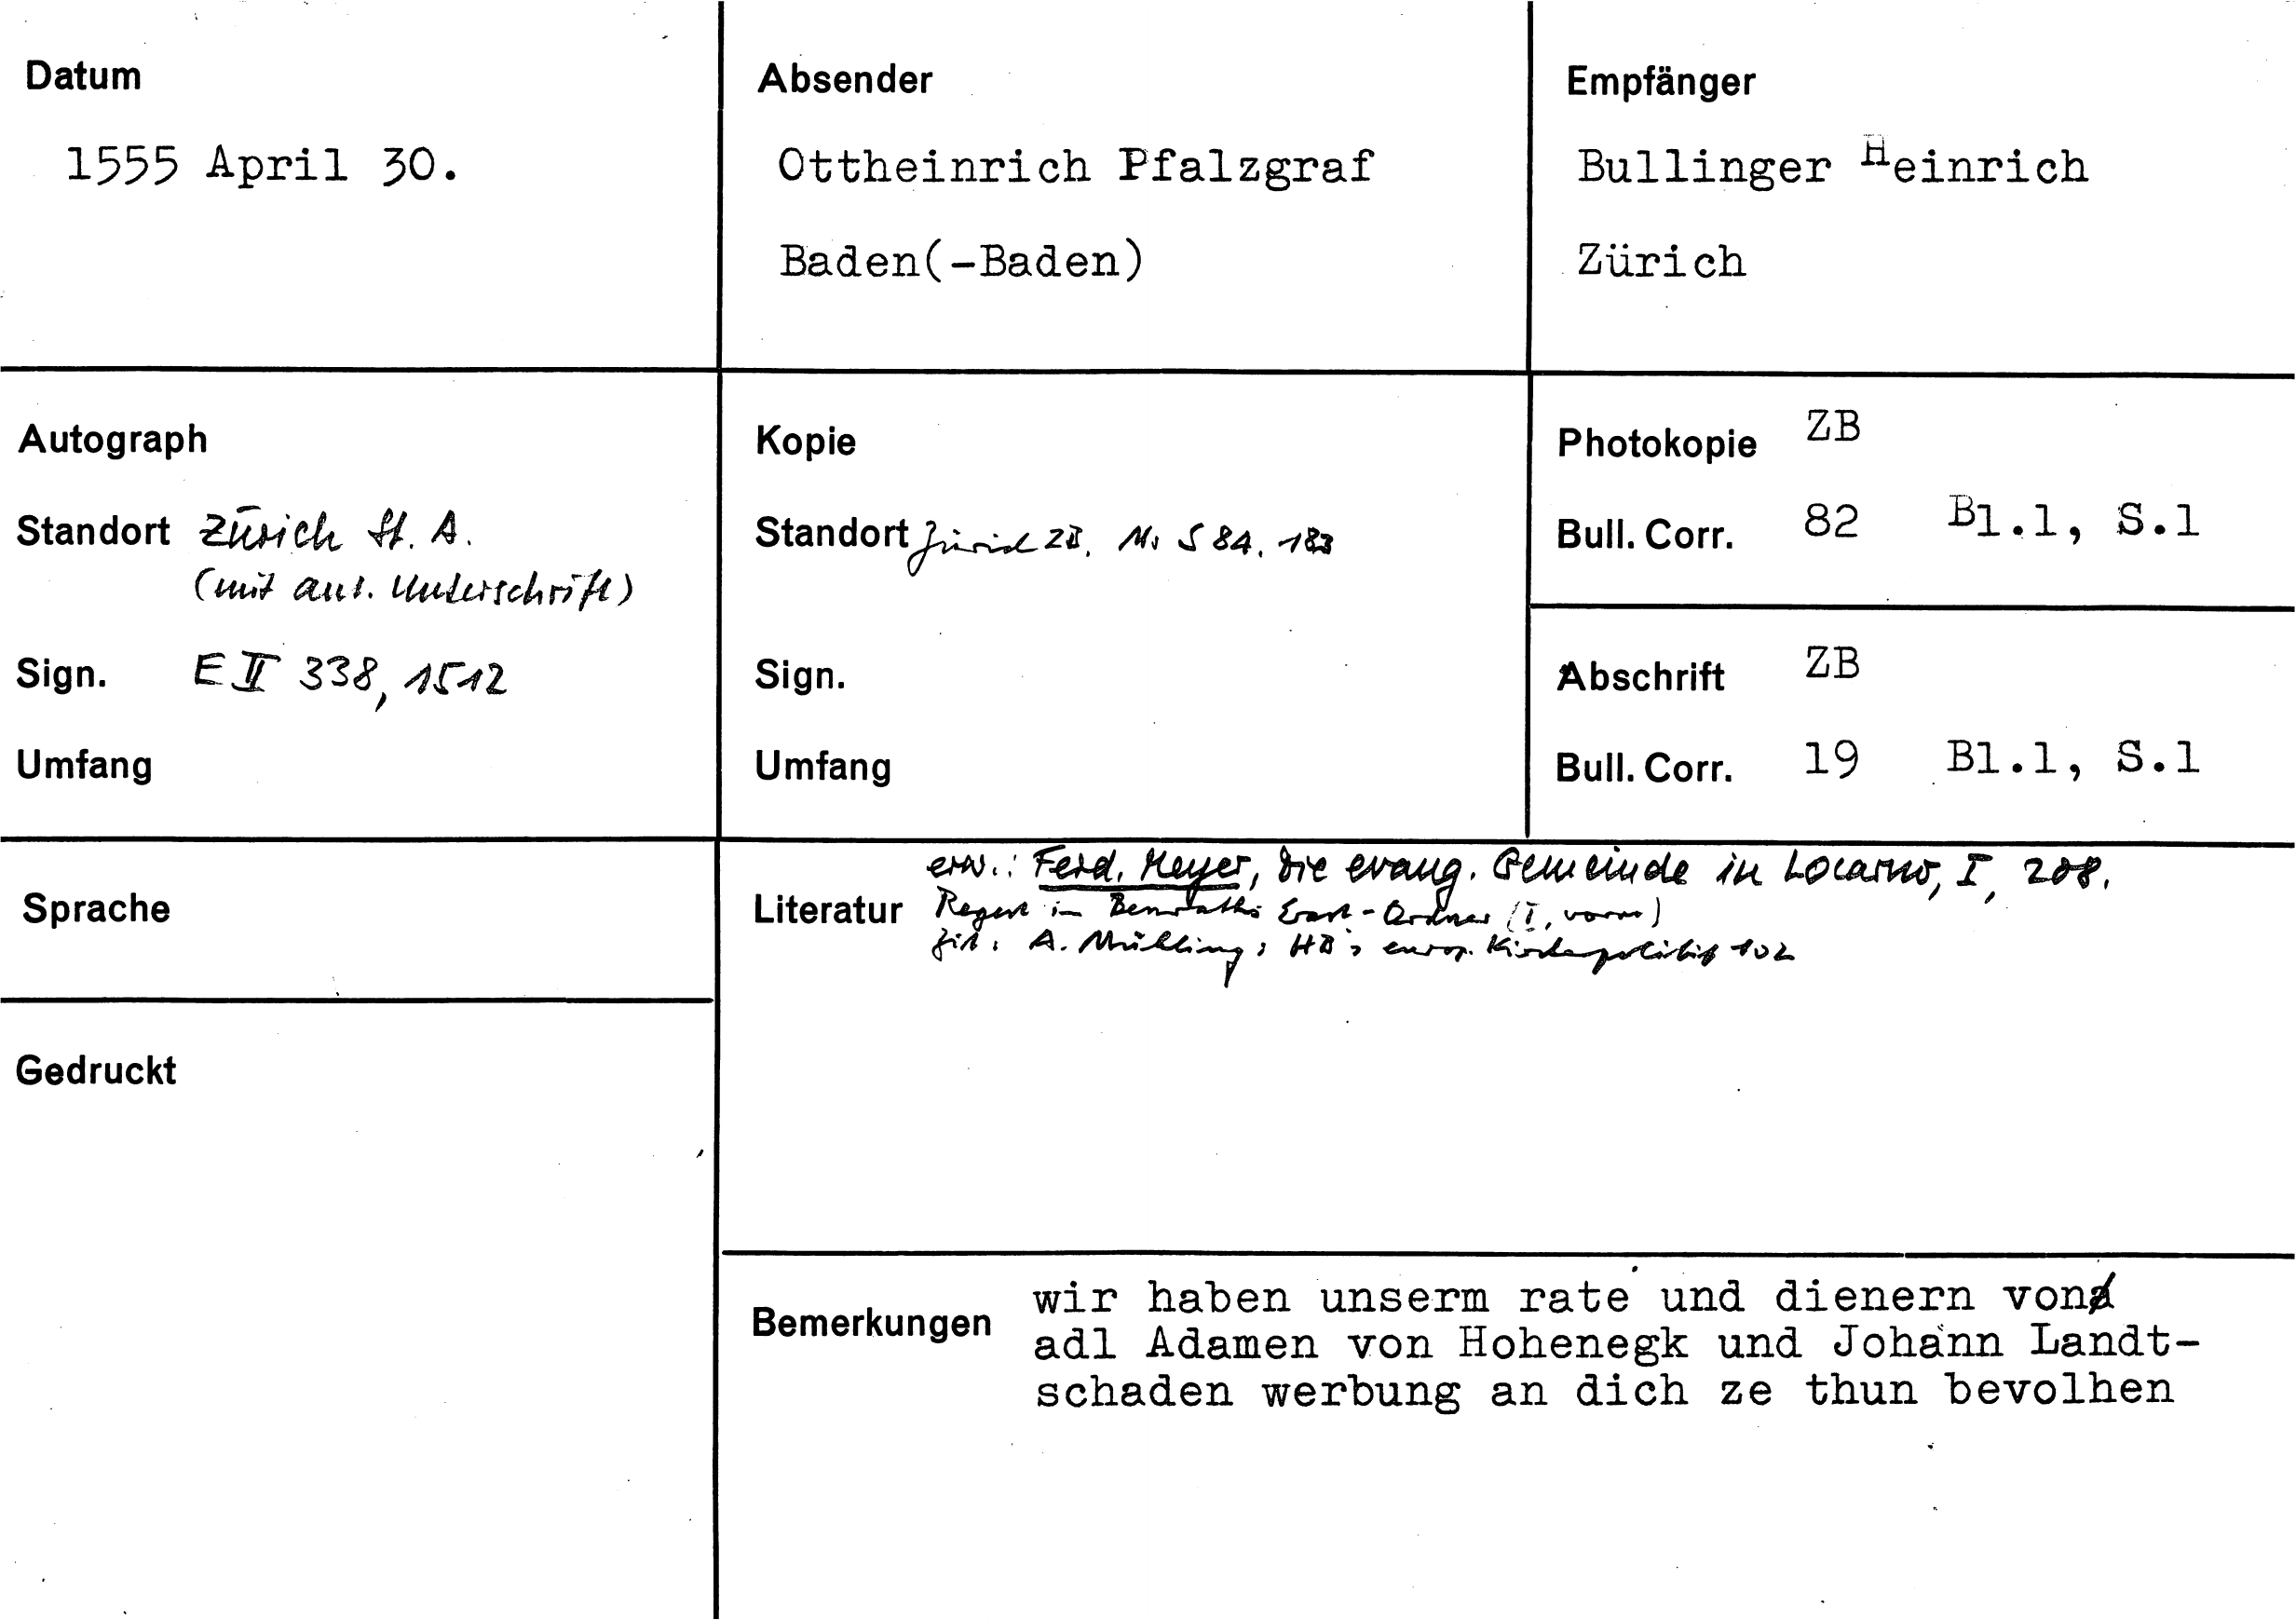 Datum
1555 April 30.
Absender
Ottheinrich Pfalzgraf
Baden(-Baden)
Empfänger
Bullinger Heinrich
Zürich
Autograph
Standort Zürich St. A.
(mit aut. Unterschrift)
Sign. E II 338, 1512
Umfang
Kopie
Standort Zürich ZB, Ms S 84, 183
Sign.
Umfang
Photokopie ZB
Bull. Corr. 82 Bl.1, S.1
Abschrift ZB
Bull. Corr. 19 Bl.1, S.1
Sprache
Gedruckt
erw.: Ferd. Meyer, Die evang. Gemeinde in Locarno, I, 208.
Literatur Regest in Benraths Erast-Ordner (I, vorn)
Zit. A. Mühling, HB's europ. Kirchenpolitik 102
Bemerkungen wir haben unserm rate und dienern von
adl Adamen von Hohenegk und Johann Landt-
schaden werbung an dich ze thun bevolhen